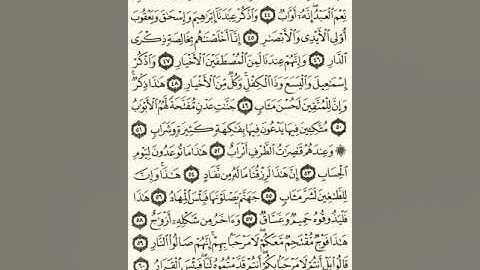 نِعْمَ ٱلْعَبْدُ إِنَّهُۥٓ أَوَّابٌ ٤٤ وَٱذْكُرْ عِبَٰدَنَآ إِبْرَٰهِيمَ وَإِسْحَٰقَ وَيَعْقُوبَ
أُو۟لِى ٱلْأَيْدِى وَٱلْأَبْصَٰرِ ٤٥ إِنَّآ أَخْلَصْنَٰهُم بِخَالِصَةٍ ذِكْرَى
ٱلدَّارِ ٤٦ وَإِنَّهُمْ عِندَنَا لَمِنَ ٱلْمُصْطَفَيْنَ ٱلْأَخْيَارِ ٤٧ وَٱذْكُرْ
إِسْمَٰعِيلَ وَٱلْيَسَعَ وَذَا ٱلْكِفْلِ وَكُلٌّ مِّنَ ٱلْأَخْيَارِ ٤٨ هَٰذَا ذِكْرٌ
وَإِنَّ لِلْمُتَّقِينَ لَحُسْنَ مَـَٔابٍ ٤٩ جَنَّٰتِ عَدْنٍ مُّفَتَّحَةً لَّهُمُ ٱلْأَبْوَٰبُ
٥٠ مُتَّكِـِٔينَ فِيهَا يَدْعُونَ فِيهَا بِفَٰكِهَةٍ كَثِيرَةٍ وَشَرَابٍ ٥١
۞ وَعِندَهُمْ قَٰصِرَٰتُ ٱلطَّرْفِ أَتْرَابٌ ٥٢ هَٰذَا مَا تُوعَدُونَ لِيَوْمِ
ٱلْحِسَابِ ٥٣ إِنَّ هَٰذَا لَرِزْقُنَا مَا لَهُۥ مِن نَّفَادٍ ٥٤ هَٰذَا وَإِنَّ
لِلطَّٰغِينَ لَشَرَّ مَـَٔابٍ ٥٥ جَهَنَّمَ يَصْلَوْنَهَا فَبِئْسَ ٱلْمِهَادُ ٥٦ هَٰذَا
فَلْيَذُوقُوهُ حَمِيمٌ وَغَسَّاقٌ ٥٧ وَءَاخَرُ مِن شَكْلِهِۦٓ أَزْوَٰجٌ ٥٨
هَٰذَا فَوْجٌ مُّقْتَحِمٌ مَّعَكُمْ لَا مَرْحَبًۢا بِهِمْ إِنَّهُمْ صَالُوا۟ ٱلنَّارِ ٥٩
قَالُوا۟ بَلْ أَنتُمْ لَا مَرْحَبًۢا بِكُمْ أَنتُمْ قَدَّمْتُمُوهُ لَنَا فَبِئْسَ ٱلْقَرَارُ ٦٠